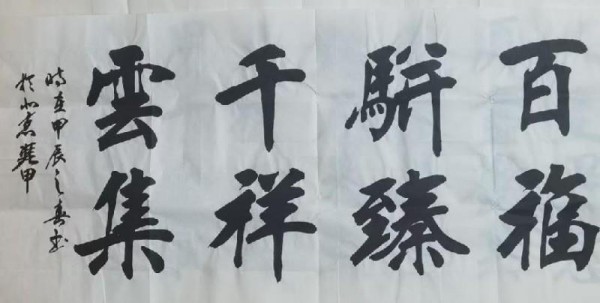 百福
駢臻
千祥
雲集
時在甲辰之春書
於北京龍甲